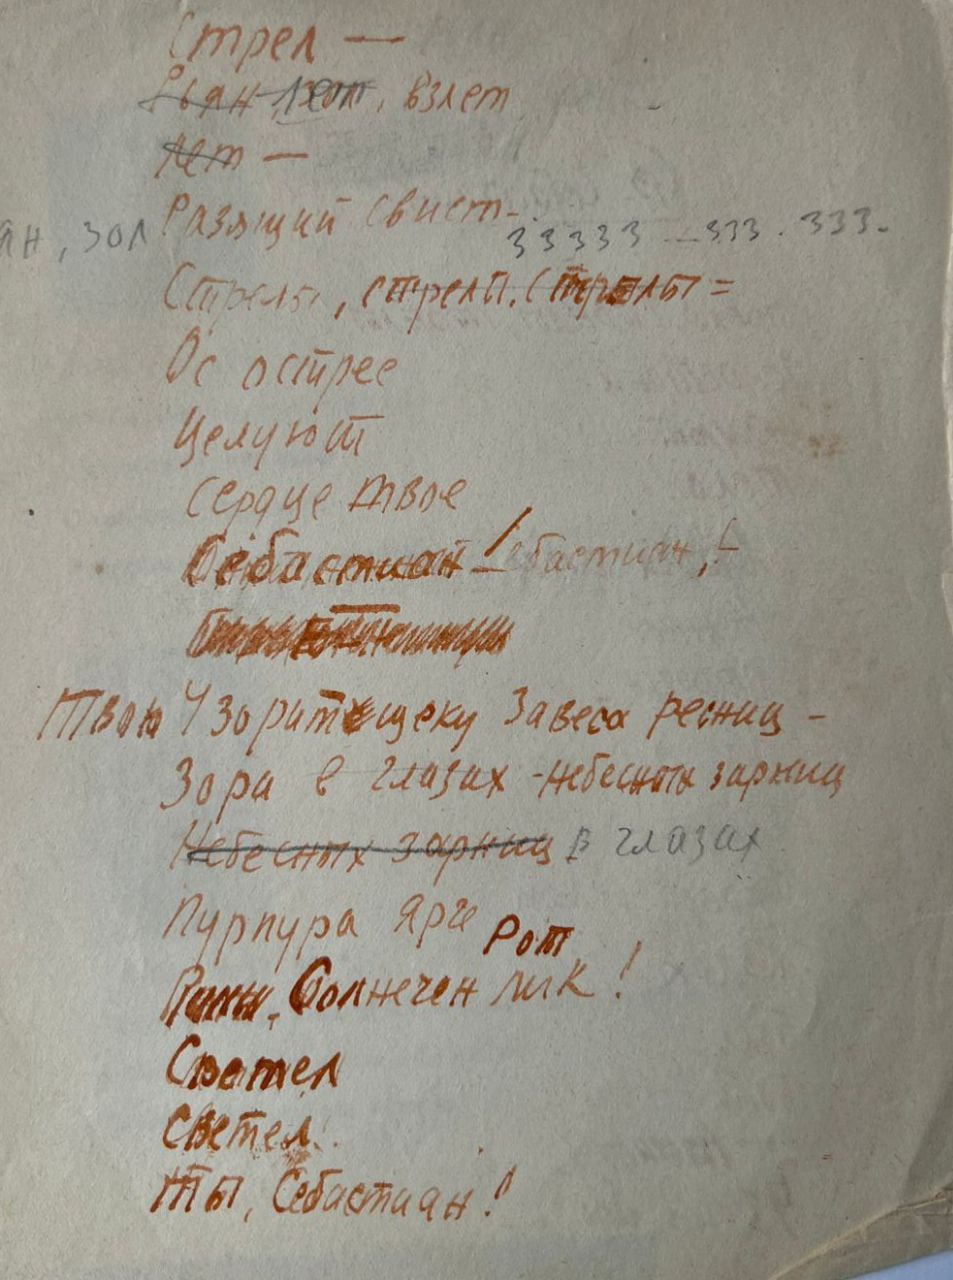 Стрел —
Рьян лет, взлет
лет —
Разящий свист.
ян, зол
33333 — 333. 333.
Стрелы, стрелы, стрелы =
Ос острее
Целуют
Сердце твое
Себастиан — Себастиан, !
Твою Узорит щеку Завеса ресниц -
Зора в глазах - небесных зарниц
Небесных зарниц в глазах
Пурпура ярче Рот
Солнечен лик!
Светел
Светел.
Ты, Себастиан!